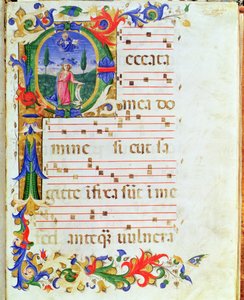 Peccata
mea do
mine si cut sa
gitte īfixa sūt ī me
sed anteq̃ uulnera